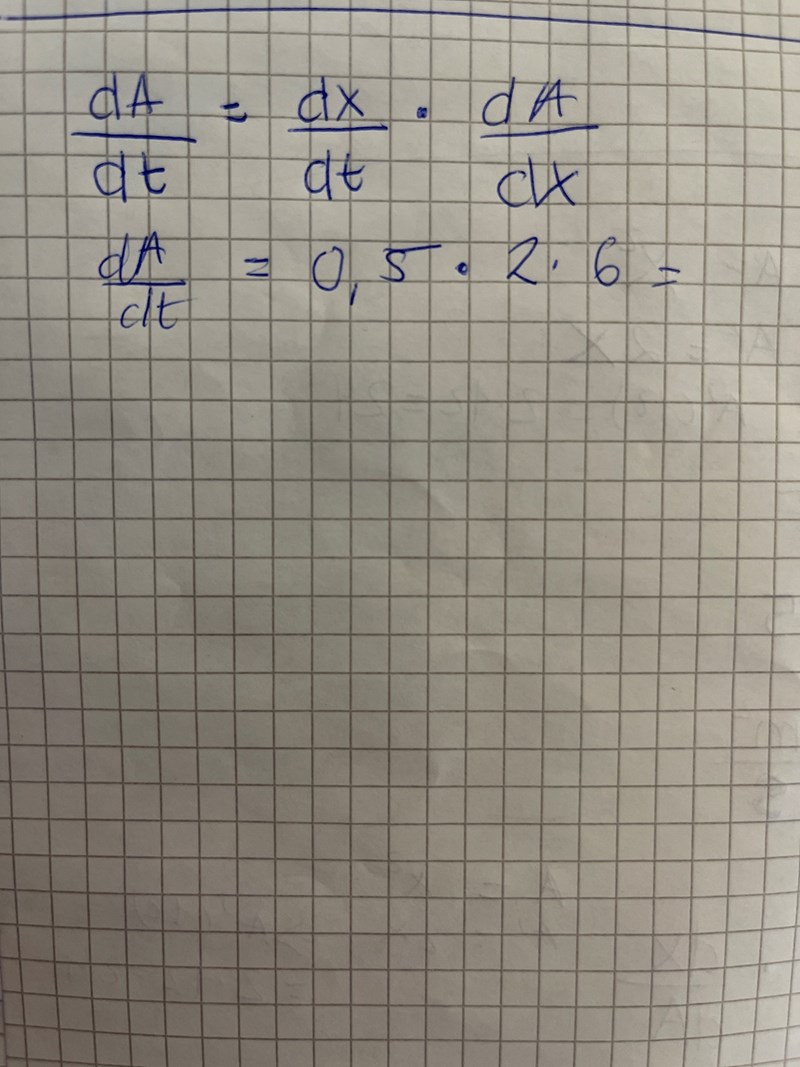 dA/dt = dx/dt · dA/dx
dA/dt = 0,5 · 2 · 6 =